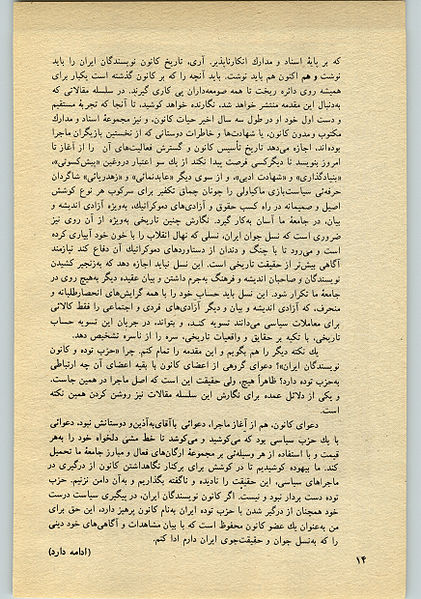 که بر پایهٔ اسناد و مدارك انکارناپذیر. آری، تاریخ کانون نویسندگان ایران را باید
نوشت و هم اکنون هم باید نوشت. باید آنچه را که بر کانون گذشته است یکبار برای
همیشه روی دائره ریخت تا همه صومعه‌داران پی کاری گیرند. در سلسله مقالاتی که
به‌دنبال این مقدمه منتشر خواهد شد، نگارنده خواهد کوشید، تا آنجا که تجربهٔ مستقیم
و دست اول خود او در طول سه سال اخیر حیات کانون، و نیز مجموعهٔ اسناد و مدارك
مکتوب و مدون کانون، یا شهادت‌ها و خاطرات دوستانی که از نخستین بازیگران ماجرا
بوده‌اند، اجازه می‌دهد تاریخ تأسیس کانون و گسترش فعالیت‌های آن را از آغاز تا
امروز بنویسد تا دیگرکسی فرصت پیدا نکند از یك سو اعتبار دروغین «پیش‌کسوتی»،
«بنیادگذاری» و «شهادت ادبی»، و از سوی دیگر «عابدنمائی» و «زهدریائی» شاگردان
حرفه‌ئی سیاست‌بازی ماکیاولی را چونان چماق تکفیر برای سرکوب هر نوع کوشش
اصیل و صمیمانه در راه کسب حقوق و آزادی‌های دموکراتیك، به‌ویژه آزادی اندیشه و
بیان، در جامعهٔ ما آسان به‌کار گیرد. نگارش چنین تاریخی به‌ویژه از آن روی نیز
ضروری است که نسل جوان ایران، نسلی که نهال انقلاب را با خون خود آبیاری کرده
است و می‌رود تا با چنگ و دندان از دستاوردهای دموکراتیك آن دفاع کند نیازمند
آگاهی بیش‌تر از حقیقت تاریخی است. این نسل نباید اجازه دهد که به‌زنجیر کشیدن
نویسندگان و صاحبان اندیشه و فرهنگ به‌جرم داشتن و بیان عقیده دیگر به‌هیچ روی در
جامعهٔ ما تکرار شود. این نسل باید حساب خود را با همه گرایش‌های انحصارطلبانه و
منحرف، که آزادی اندیشه و بیان و دیگر آزادی‌های فردی و اجتماعی را فقط کالائی
برای معاملات سیاسی می‌دانند تسویه کنـد، و بتواند، در جریان این تسویه حساب
تاریخی، با تکیه بر حقایق و واقعیات تاریخی، سره را از ناسره تشخیص دهد.
یك نکته دیگر را هم بگویم و این مقدمه را تمام کنم. چرا «حزب توده و کانون
نویسندگان ایران»؟ دعوای گروهی از اعضای کانون با بقیه اعضای آن چه ارتباطی
به‌حزب توده دارد؟ ظاهراً هیچ، ولی حقیقت این است که اصل ماجرا در همین جاست.
و یکی از دلائل عمده برای نگارش این سلسله مقالات نیز روشن کردن همین نکته
است.
دعوای کانون، هم از آغاز ماجرا، دعوائی با آقای به‌آذین و دوستانش نبود، دعوائی
با یك حزب سیاسی بود که می‌کوشید و می‌کوشد تا خط مشی دلخواه خود را به‌هر
قیمت و با استفاده از هر وسیله‌ئی بر مجموعهٔ ارگان‌های فعال و مبارز جامعهٔ ما تحمیل
کند. ما بیهوده کوشیدیم تا در کوشش برای برکنار نگاهداشتن کانون از درگیری در
ماجراهای سیاسی، این حقیقت را نادیده و ناگفته بگذاریم و به‌آن دامن نزنیم. حزب
توده دست بردار نبود و نیست. اگر کانون نویسندگان ایران، در پیگیری سیاست درست
خود همچنان از درگیر شدن با حزب توده ایران به‌نام کانون پرهیز دارد، این حق برای
من به‌عنوان یك عضو کانون محفوظ است که با بیان مشاهدات و آگاهی‌های خود دینی
را که به‌نسل جوان و حقیقت‌جوی ایران دارم ادا کنم.
(ادامه دارد)
۱۴